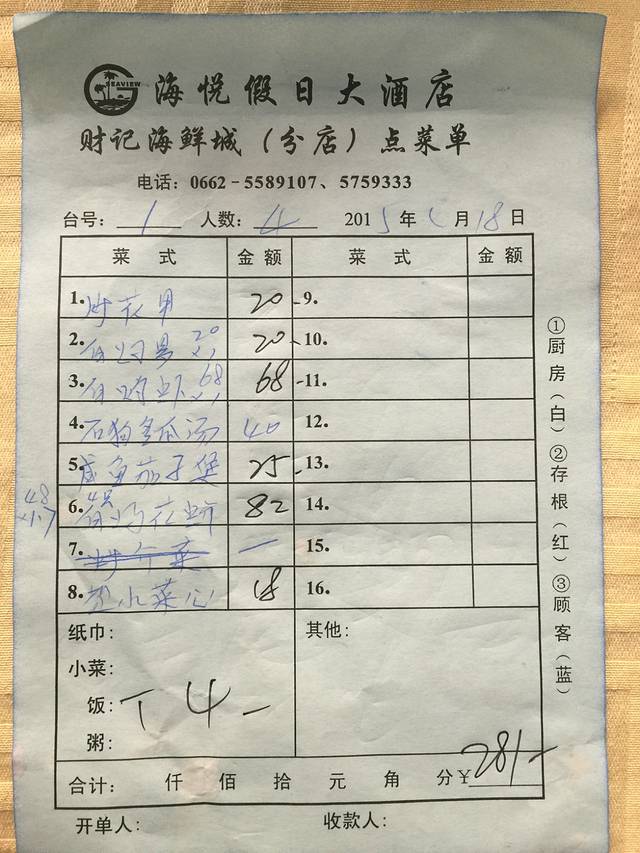 SEAVIEW
海悦假日大酒店
财记海鲜城（分店）点菜单
电话：0662－5589107、5759333
台号：1 人数：4 2015年 月18日
菜 式 金额 菜 式 金额
1. 炒花甲 20- 9.
2. 白灼 20 20- 10.
3. 白灼虾 68 68- 11.
4. 石狗 瓜汤 40 12.
5. 咸鱼茄子煲 25- 13.
48
6. 白灼花 82 14.
7. 炒 菜 — 15.
8. 菜心 18 16.
纸巾： 其他：
小菜：
饭：T 4-
粥：
合计： 仟 佰 拾 元 角 分￥281-
开单人： 收款人：
①厨房（白）②存根（红）③顾客（蓝）